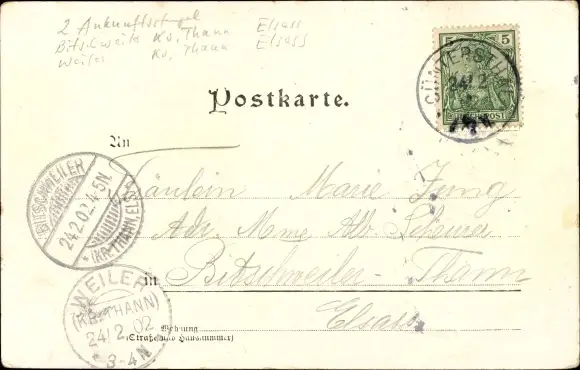 2 Ankunftsstpel
Bitschweiler Kr. Thann Elsass
Weiler Kr. Thann Elsass
5 5
REICHSPOST
GÜNTERSTHAL
24 2
Postkarte.
An
Fräulein Marie Jung
Adr. Mme Alb. Scheurer
in Bitschweiler-Thann
Elsass
Wohnung
(Straße und Hausnummer)
BITSCHWEILER
24.2.02.4-5N.
(KR. THANN) ELS.
WEILER
(KR. THANN)
24/2 02
3-4N